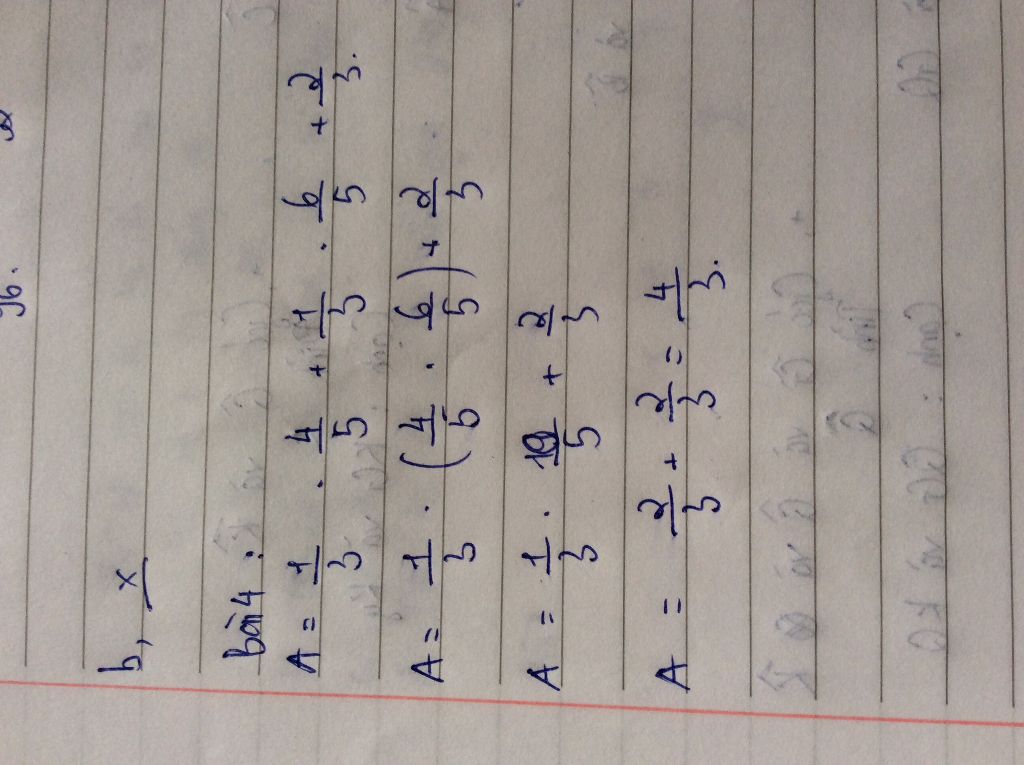 96.
b, x
Bài 4 :
A = 1/3 . 4/5 + 1/3 . 6/5 + 2/3.
A = 1/3 . (4/5 . 6/5) + 2/3
A = 1/3 . 10/5 + 2/3
A = 2/3 + 2/3 = 4/3.